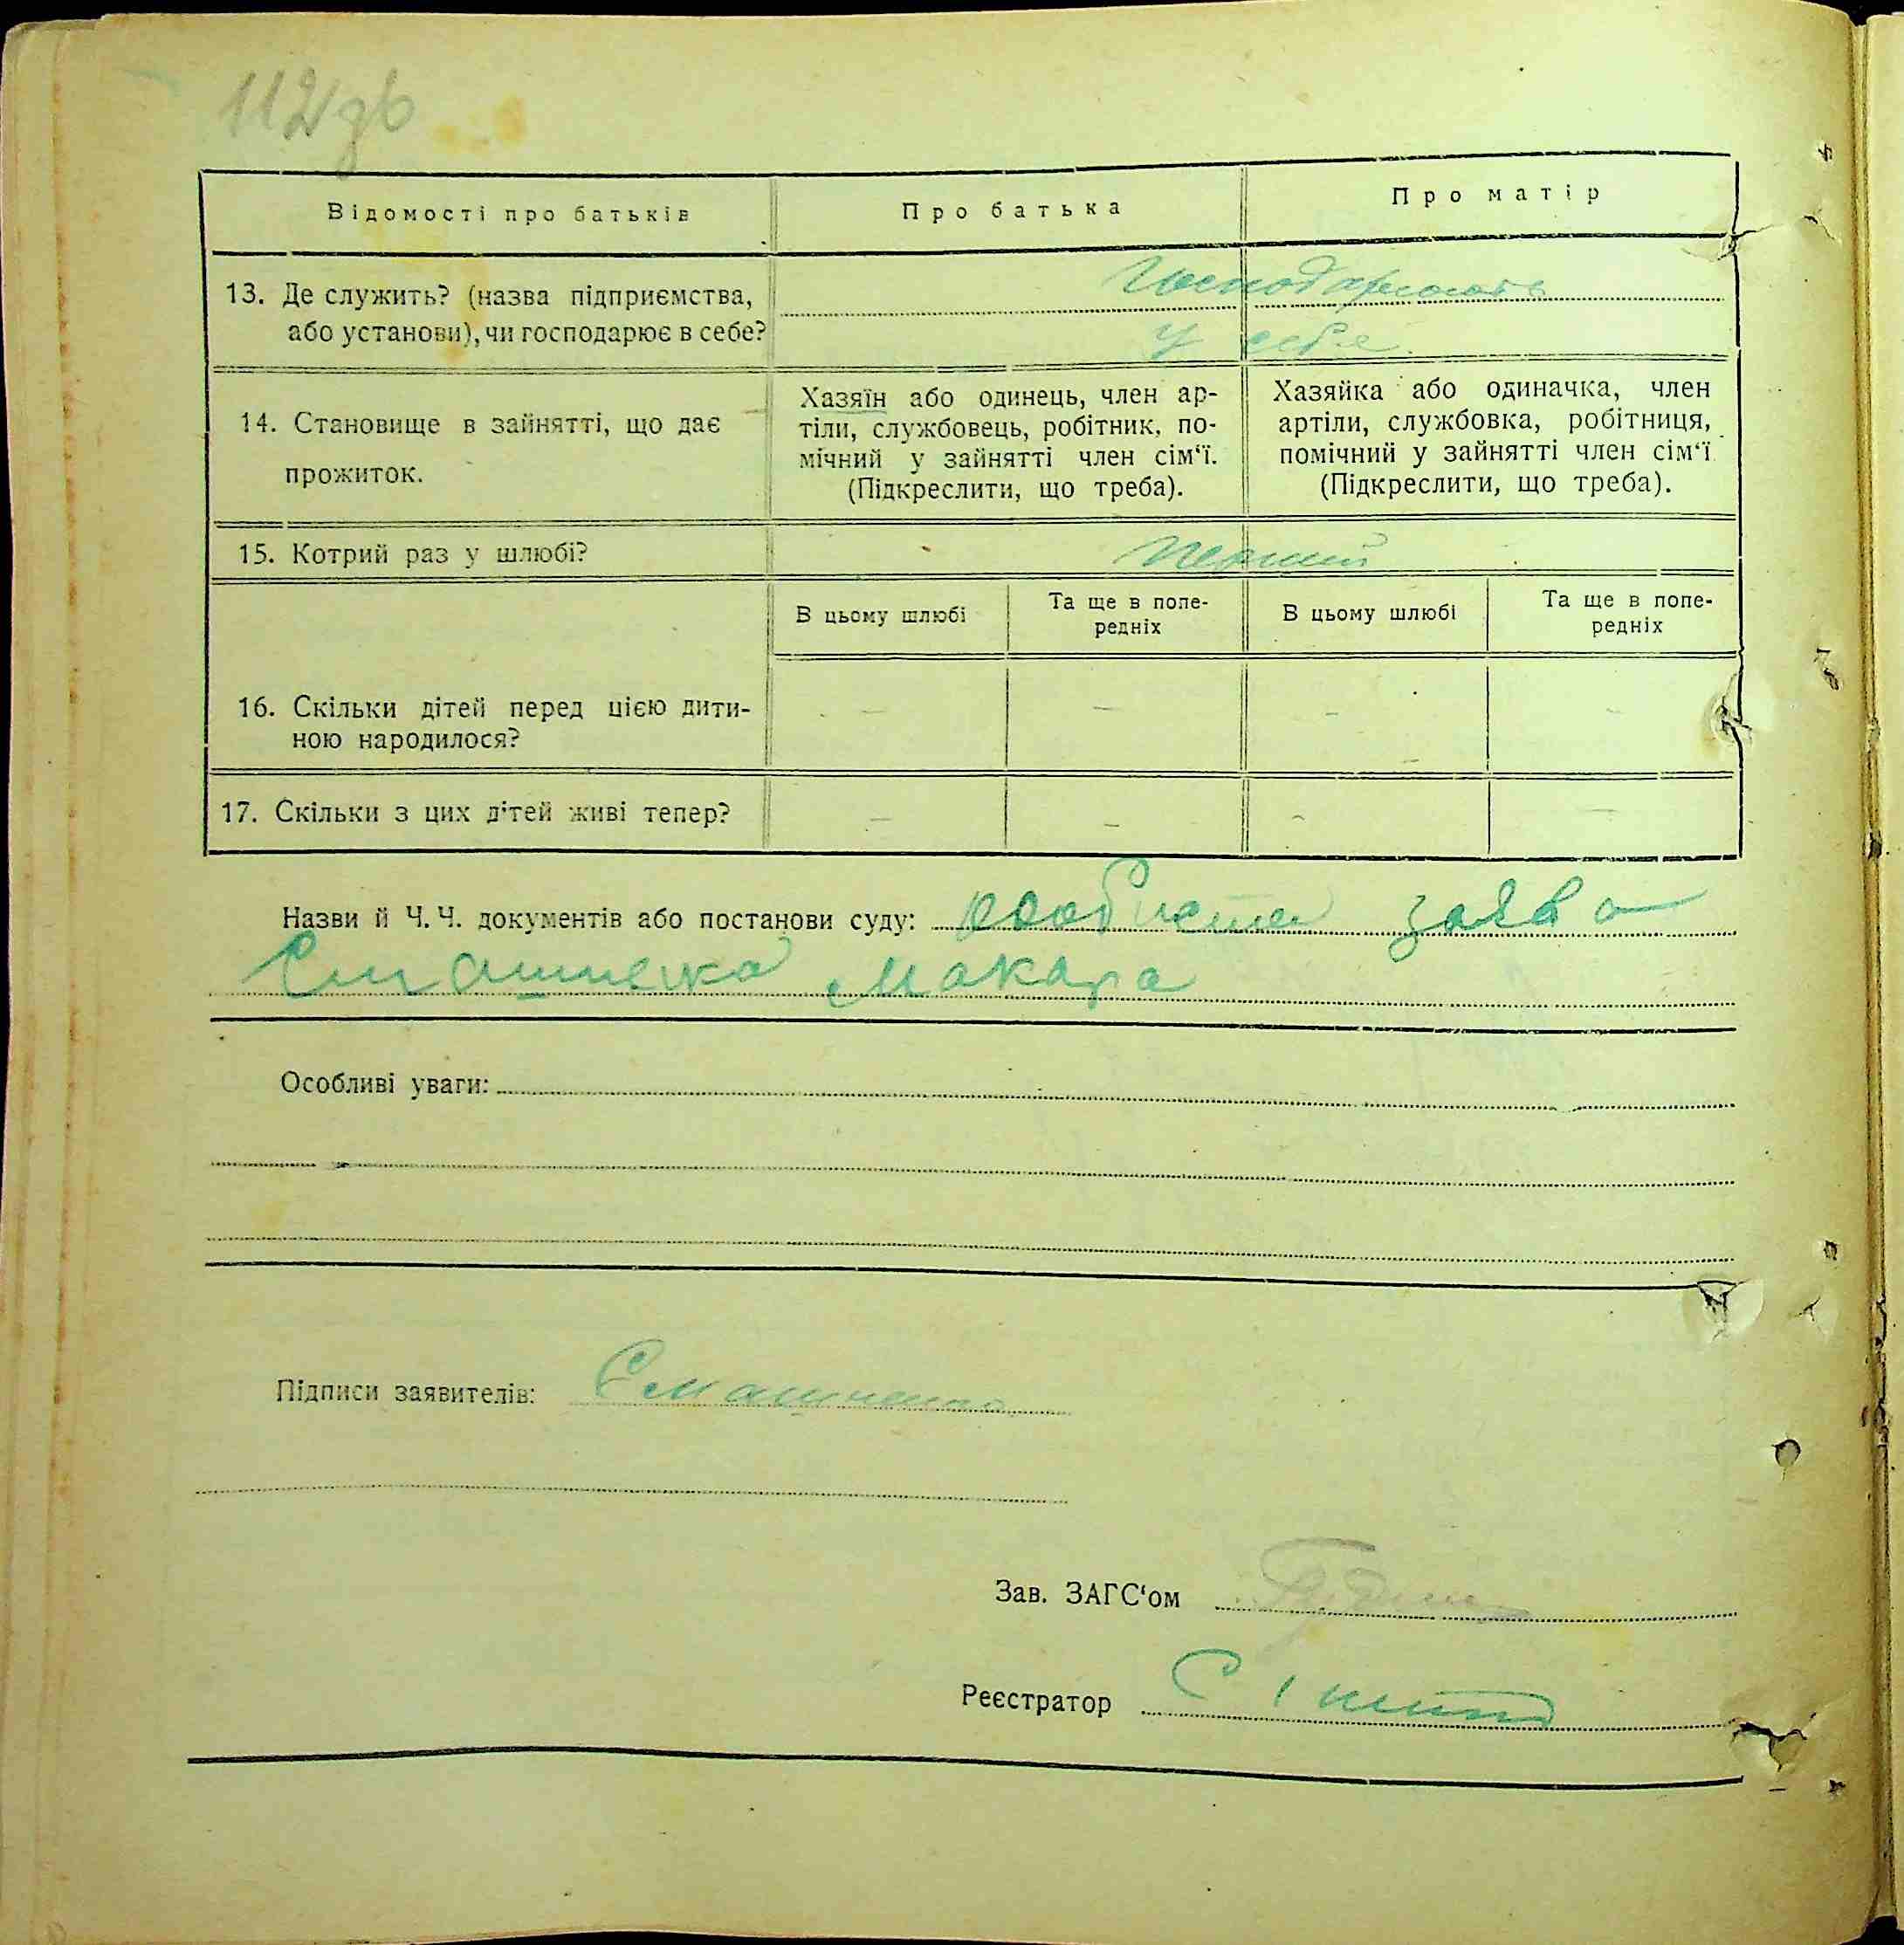 112 зв
Відомості про батьків
Про батька
Про матір
13. Де служить? (назва підприємства,
або установи), чи господарює в себе?
Господарюють
у себе
14. Становище в зайнятті, що дає
прожиток.
Хазяїн або одинець, член ар-
тіли, службовець, робітник, по-
мічний у зайнятті член сім‘ї.
(Підкреслити, що треба).
Хазяйка або одиначка, член
артіли, службовка, робітниця,
помічний у зайнятті член сім‘ї
(Підкреслити, що треба).
15. Котрий раз у шлюбі?
Перший
В цьому шлюбі
Та ще в попе-
редніх
В цьому шлюбі
Та ще в попе-
редніх
16. Скільки дітей перед цією дити-
ною народилося?
— — — —
17. Скільки з цих дітей живі тепер?
— — — —
Назви й Ч. Ч. документів або постанови суду: особиста заява
Макара
Особливі уваги:
Підписи заявителів:
Зав. ЗАГС‘ом
Реєстратор